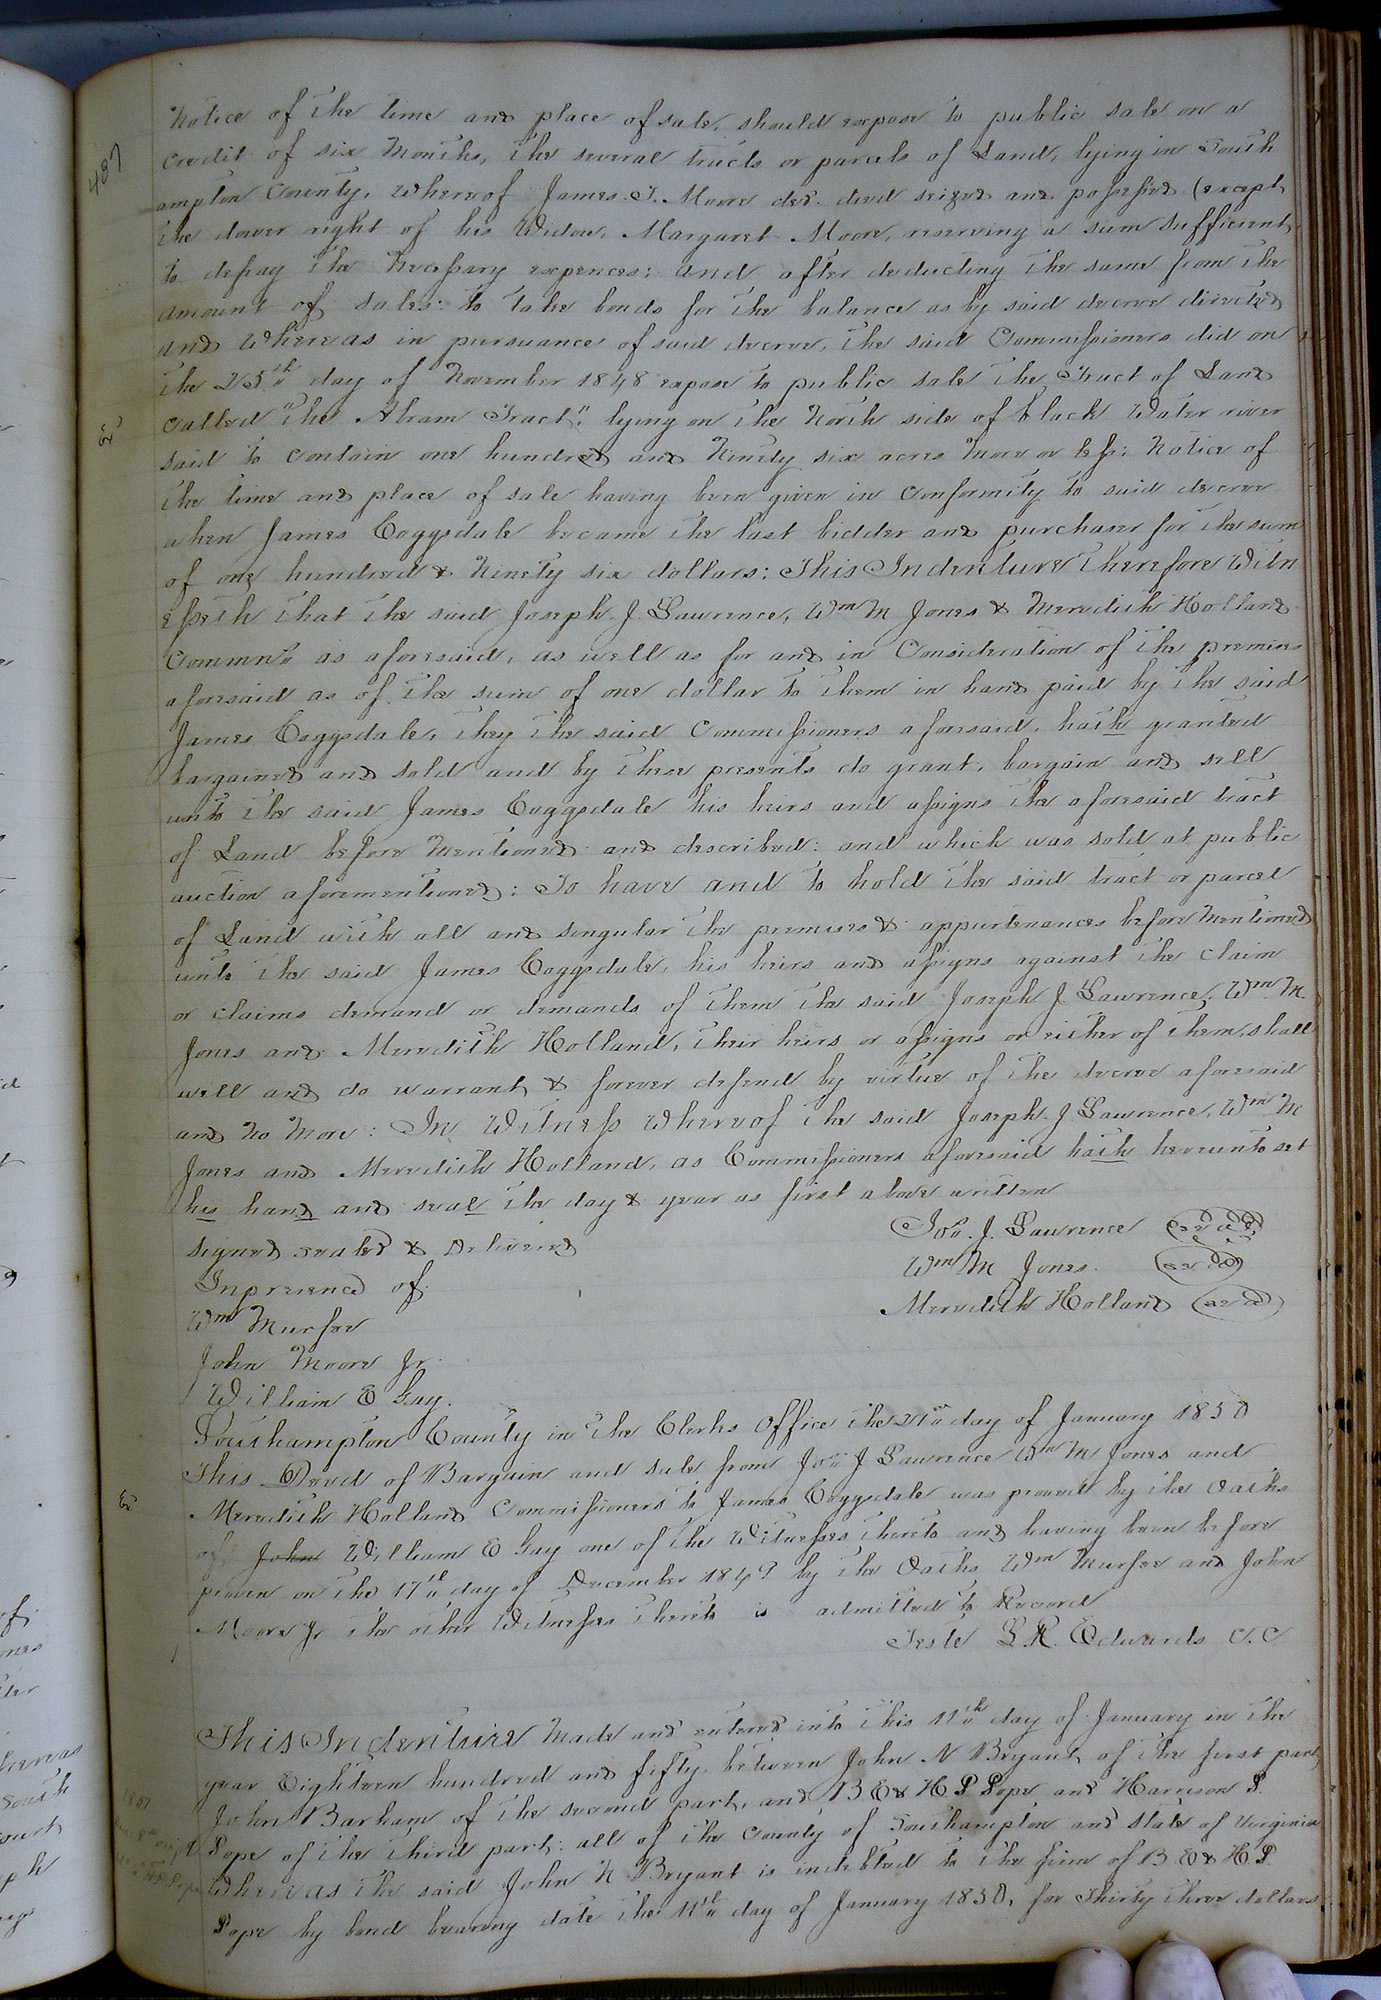 487
Notice of the time and place of sale, should expose to public sale on a
credit of six Months, the several tracts or parcels of Land, lying in South
ampton County, whereof James T. Moore decd. died seized and possessed (except
the dower right of his Widow, Margaret Moore, reserving a sum sufficient
to defray the Necessary expences: and after deducting the same from the
amount of sales: to take bonds for the balance as by said decree directed
and Whereas in pursuance of said decree, the said Commissioners did on
the 25th day of November 1848 expose to public sale the Tract of Land
called "the Abram Tract", lying on the North side of black Water river
said to contain one hundred and Ninety six acres More or less: Notice of
the time and place of sale having been given in Conformity to said decree
when James Coggsdale became the last bidder and purchaser for the sum
of one hundred & Ninety six dollars: This Indenture Therefore Witn
esseth that the said Joseph J Lawrence, Wm M Jones & Meredith Holland
Commns as aforesaid, as well as for and in Consideration of the premises
aforesaid as of the sum of one dollar to them in hand paid by the said
James Coggsdale, they the said Commissioners aforesaid, hath granted
bargained and sold and by these presents do grant, bargain and sell
unto the said James Coggsdale his heirs and assigns the aforesaid tract
of Land before Mentioned and described: and which was sold at public
auction aforementioned: To have and to hold the said tract or parcel
of Land with all and singular the premises & appurtenances before Mentioned
unto the said James Coggsdale, his heirs and assigns against the claim
or claims demand or demands of them the said Joseph J Lawrence, Wm M.
Jones and Meredith Holland, their heirs or assigns or either of them, shall
will and do warrant & forever defend by virtue of the decree aforesaid
and No More: In Witness Whereof the said Joseph J Lawrence, Wm M
Jones and Meredith Holland, as Commissioners aforesaid hath hereunto set
his hand and seal the day & year as first above written
signed sealed & Delivered
Jos. J. Lawrence (seal)
Inpresence of
Wm M Jones. (seal)
Wm Murfee
Meredith Holland (seal)
John Moore Jr.
William E Gay.
Southampton County in the Clerks Office the 21st day of January 1850
This Deed of Bargain and sale from Jos J Lawrence Wm M Jones and
Meredith Holland Commissioners to James Coggsdale was proved by the Oaths
of John William E Gay one of the Witnesses thereto and having been before
proven on the 17th day of December 1849 by the Oaths Wm Murfee and John
Moore Jr the other Witnesses thereto is admitted to Record
Teste L. R. Edwards C.C
This Indenture Made and entered into this 11th day of January in the
year Eighteen hundred and fifty between John N Bryant of the first part,
John Barham of the second part, and B E & H P Pope and Harrison P.
Pope of the third part: all of the County of Southampton and state of Virginia
Whereas the said John N Bryant is indebted to the firm of B E & H P
Pope by bond bearing date the 11th day of January 1850, for Thirty three dollars